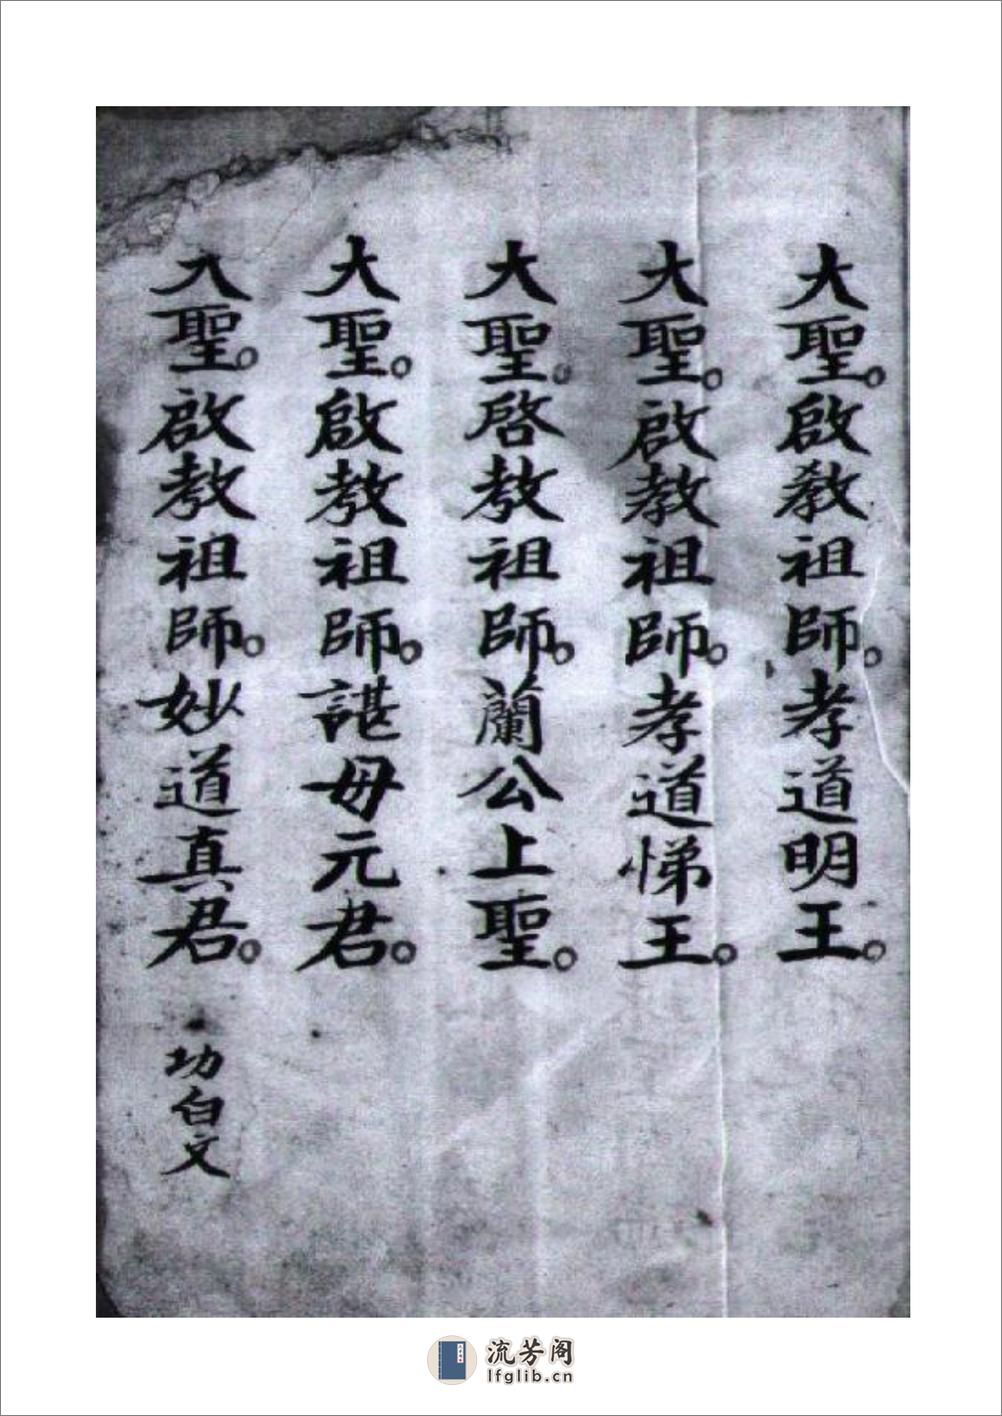 大聖。啟教祖師。孝道明王。
大聖。啟教祖師。孝道悌王。
大聖。啓教祖師。蘭公上聖。
大聖。啟教祖師。諶母元君。
大聖。啟教祖師。妙道真君。 功白文
流芳阁
lfglib.cn